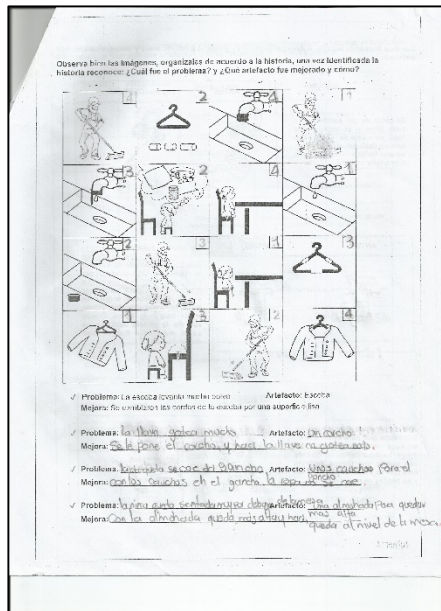 Observa bien las imágenes, organízalas de acuerdo a la historia, una vez identificada la
historia reconoce: ¿Cuál fue el problema? y ¿Que artefacto fue mejorado y como?
4 2 4 1
3 2 4 1
2 3 1 3
1 3 2 4
✓ Problema: La escoba levanta mucho polvo Artefacto: Escoba
Mejora: Se cambiaron las cerdas de la escoba por una superficie lisa
✓ Problema: la llave gotea mucho Artefacto: Un corcho
Mejora: Se le pone el corcho, y hací la llave no gotea más.
✓ Problema: la chaqueta se cae del gancho Artefacto: Unos cauchos para el
gancho
Mejora: con los cauchos en el gancho la ropa no se cae.
✓ Problema: la niña queda sentada muy por debajo de la mesa Artefacto: una almohada Para quedar
más alta
Mejora: Con la almohada queda más alta y hací queda al nivel de la mesa.